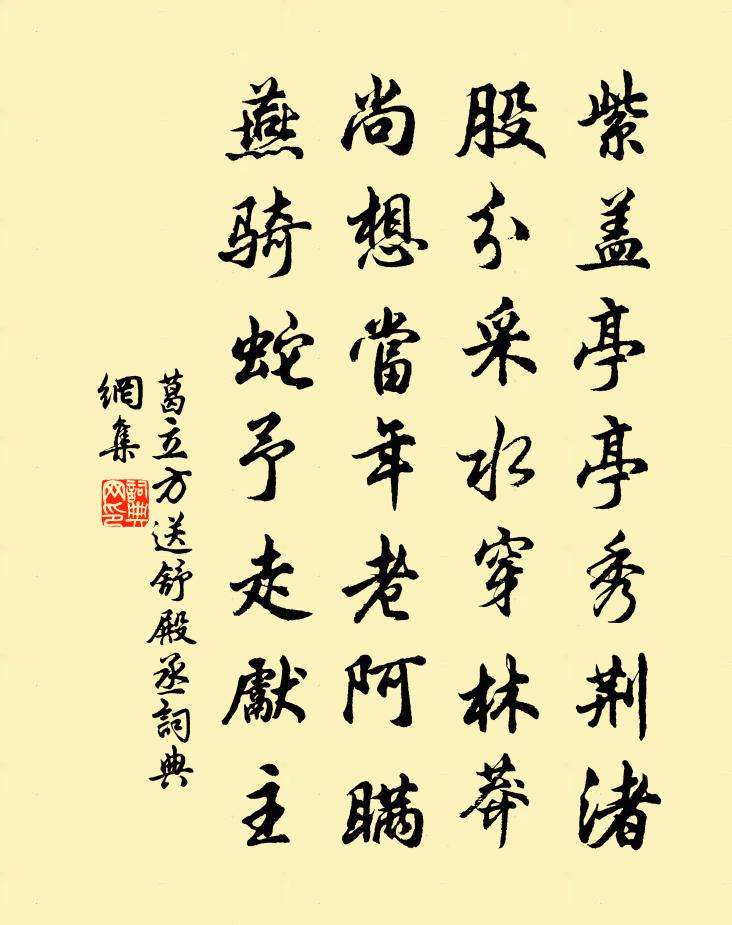 紫盖亭亭秀荆渚
股分采水穿林莽
尚想當年老阿瞞
燕骑蛇予走獻主
葛立方送舒殿丞詞典
網集
詞典
网印